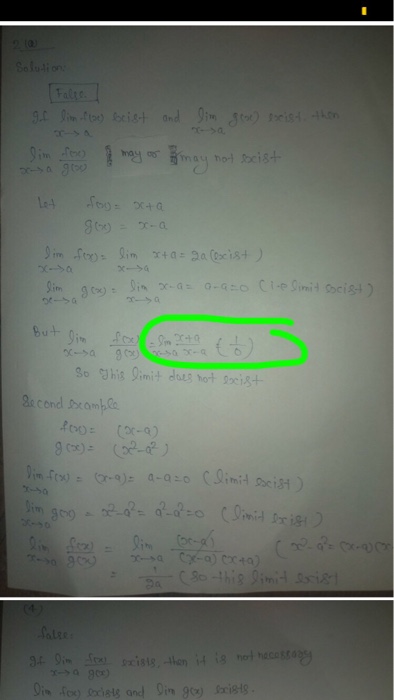 2.(a)
Solution
False.
If lim f(x) exist and lim g(x) exist, then
x→a x→a
lim f(x)/g(x) may or may not exist
x→a
Let f(x) = x+a
g(x) = x-a
lim f(x) = lim x+a = 2a (exist)
x→a x→a
lim g(x) = lim x-a = a-a=0 (limit exist)
x→a x→a
But lim f(x)/g(x) = lim x+a/x-a (1/0)
x→a x→a
So this limit does not exist
Second example
f(x) = (x-a)
g(x) = (x²-a²)
lim f(x) = (x-a) = a-a=0 (limit exist)
x→a
lim g(x) = x²-a² = a²-a²=0 (limit exist)
x→a
lim f(x)/g(x) = lim (x-a)/(x-a)(x+a) (x²-a²=(x-a)(x
x→a x→a
= 1/2a (So this limit exist
(4)
false.
If lim f(x)/g(x) exists, then it is not necessary
x→a
lim f(x) exists and lim g(x) exists.